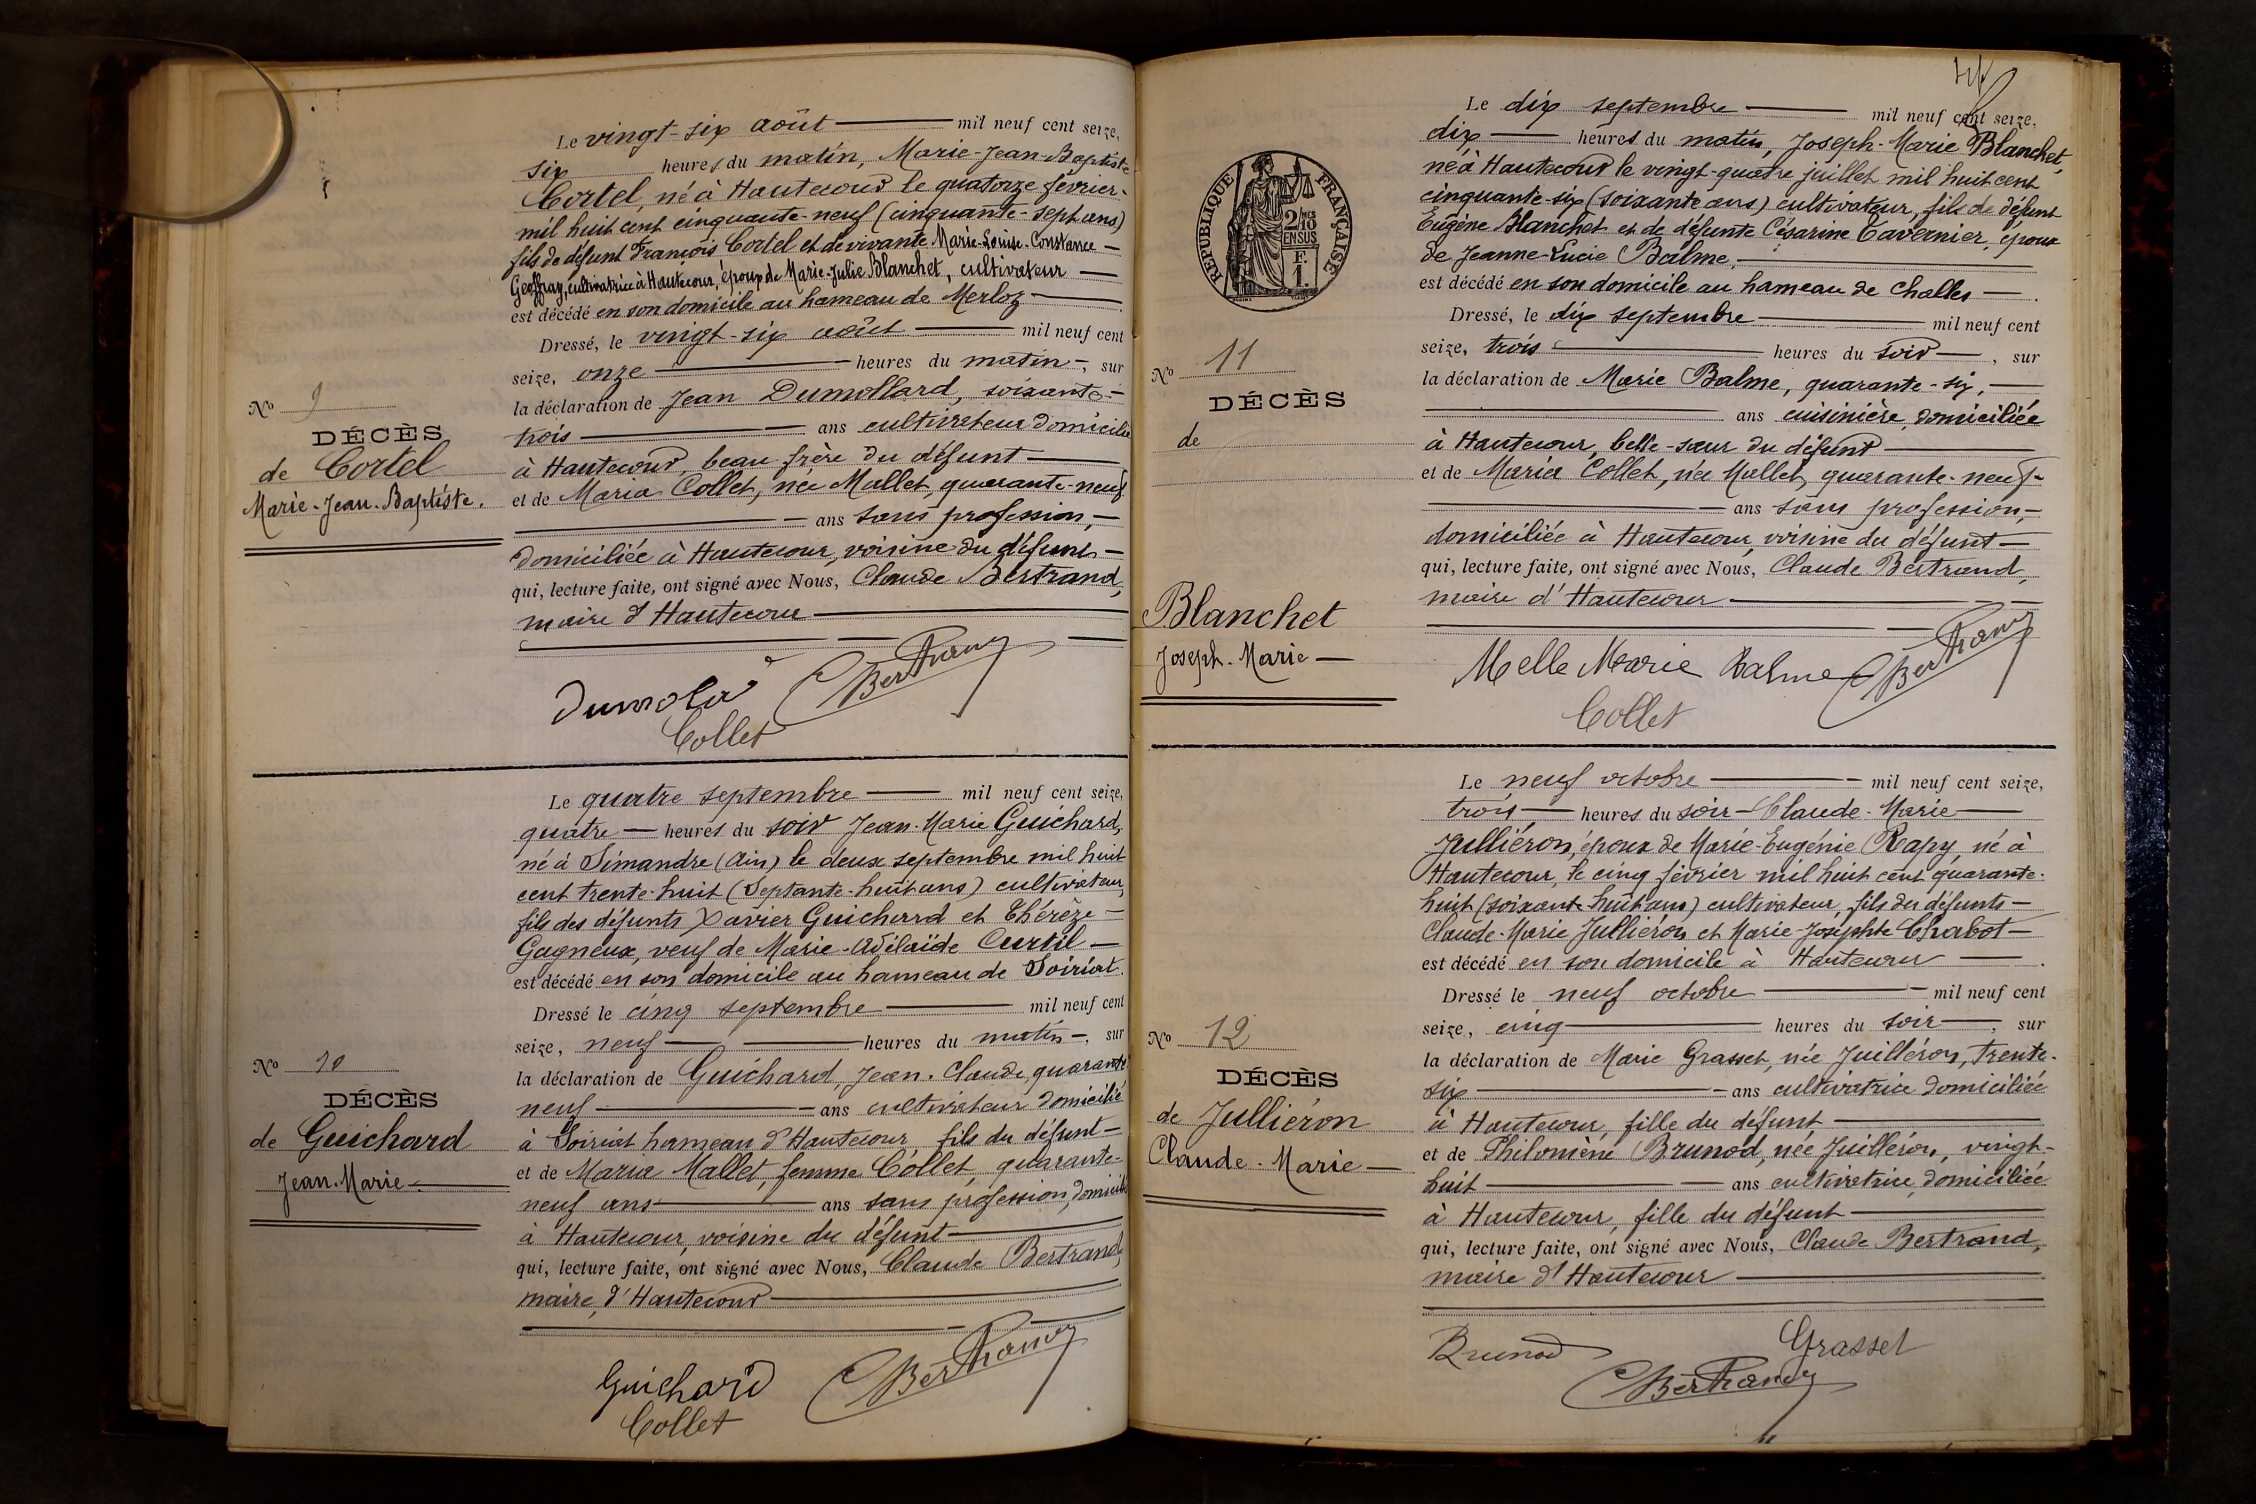 Le vingt-six août mil neuf cent seize,
six heures du matin, Marie-Jean-Baptiste
Cortel, né à Hautecour le quatorze février
mil huit cent cinquante-neuf (cinquante-sept ans)
fils de défunt François Cortel et de vivante Marie-Louise-Constance
Geoffray, cultivatrice à Hautecour, époux de Marie-Julie Blanchet, cultivateur
est décédé en son domicile au hameau de Merloz
Dressé, le vingt-six août mil neuf cent
seize, onze heures du matin, sur
la déclaration de Jean Dumollard, soixante-
trois ans cultivateur domicilié
à Hautecour, beau frère du défunt
et de Maria Collet, née Mallet, quarante-neuf
ans sans profession,
domiciliée à Hautecour, voisine du défunt
qui, lecture faite, ont signé avec Nous, Claude Bertrand,
maire d'Hautecour
No 9
DÉCÈS
de Cortel
Marie-Jean-Baptiste.
CBertrand
Collet
Le quatre septembre mil neuf cent seize,
quatre heures du soir Jean-Marie Guichard,
né à Simandre (Ain) le deux septembre mil huit
cent trente-huit (Septante-huit ans) cultivateur,
fils des défunts Xavier Guichard et Thérèze
Gagneux, veuf de Marie-Adélaïde Curtil
est décédé en son domicile au hameau de Soiriat.
Dressé le cinq septembre mil neuf cent
seize, neuf heures du matin, sur
la déclaration de Guichard, Jean-Claude, quarante
neuf ans cultivateur domicilié
à Soiriat hameau d'Hautecour fils du défunt
et de Maria Mallet, femme Collet, quarante-
neuf ans ans sans profession, domiciliée
à Hautecour, voisine du défunt
qui, lecture faite, ont signé avec Nous, Claude Bertrand,
maire, d'Hautecour
No 10
DÉCÈS
de Guichard
Jean-Marie
Guichard
CBertrand
Collet
RÉPUBLIQUE FRANÇAISE
2/10 EN SUS
F.
1.
Le dix septembre mil neuf cent seize,
dix heures du matin, Joseph-Marie Blanchet,
né à Hautecour le vingt-quatre juillet mil huit cent
cinquante-six (soixante ans) cultivateur, fils de défunt
Eugène Blanchet et de défunte Césarine Cavernier, époux
de Jeanne-Lucie Balme,
est décédé en son domicile au hameau de Challes
Dressé, le dix septembre mil neuf cent
seize, trois heures du soir, sur
la déclaration de Marie Balme, quarante-six,
ans cuisinière, domiciliée
à Hautecour, belle-sœur du défunt
et de Maria Collet, née Mallet, quarante-neuf
ans sans profession,
domiciliée à Hautecour, voisine du défunt
qui, lecture faite, ont signé avec Nous, Claude Bertrand,
maire d'Hautecour
No 11
DÉCÈS
de
Blanchet
Joseph-Marie
Melle Marie Balme
CBertrand
Collet
Le neuf octobre mil neuf cent seize,
trois heures du soir Claude-Marie
Julliéron, époux de Marie-Eugénie Rapy, né à
Hautecour, le cinq février mil huit cent quarante-
huit (soixante huit ans) cultivateur, fils des défunts
Claude-Marie Julliéron et Marie-Josephte Chabot
est décédé en son domicile à Hautecour
Dressé le neuf octobre mil neuf cent
seize, cinq heures du soir, sur
la déclaration de Marie Grasset, née Juilléron, trente-
six ans cultivatrice domiciliée
à Hautecour, fille du défunt
et de Philomène Brunod, née Juilléron, vingt-
huit ans cultivatrice, domiciliée
à Hautecour, fille du défunt
qui, lecture faite, ont signé avec Nous, Claude Bertrand,
maire d'Hautecour
No 12
DÉCÈS
de Julliéron
Claude-Marie
Brunod
Grasset
CBertrand